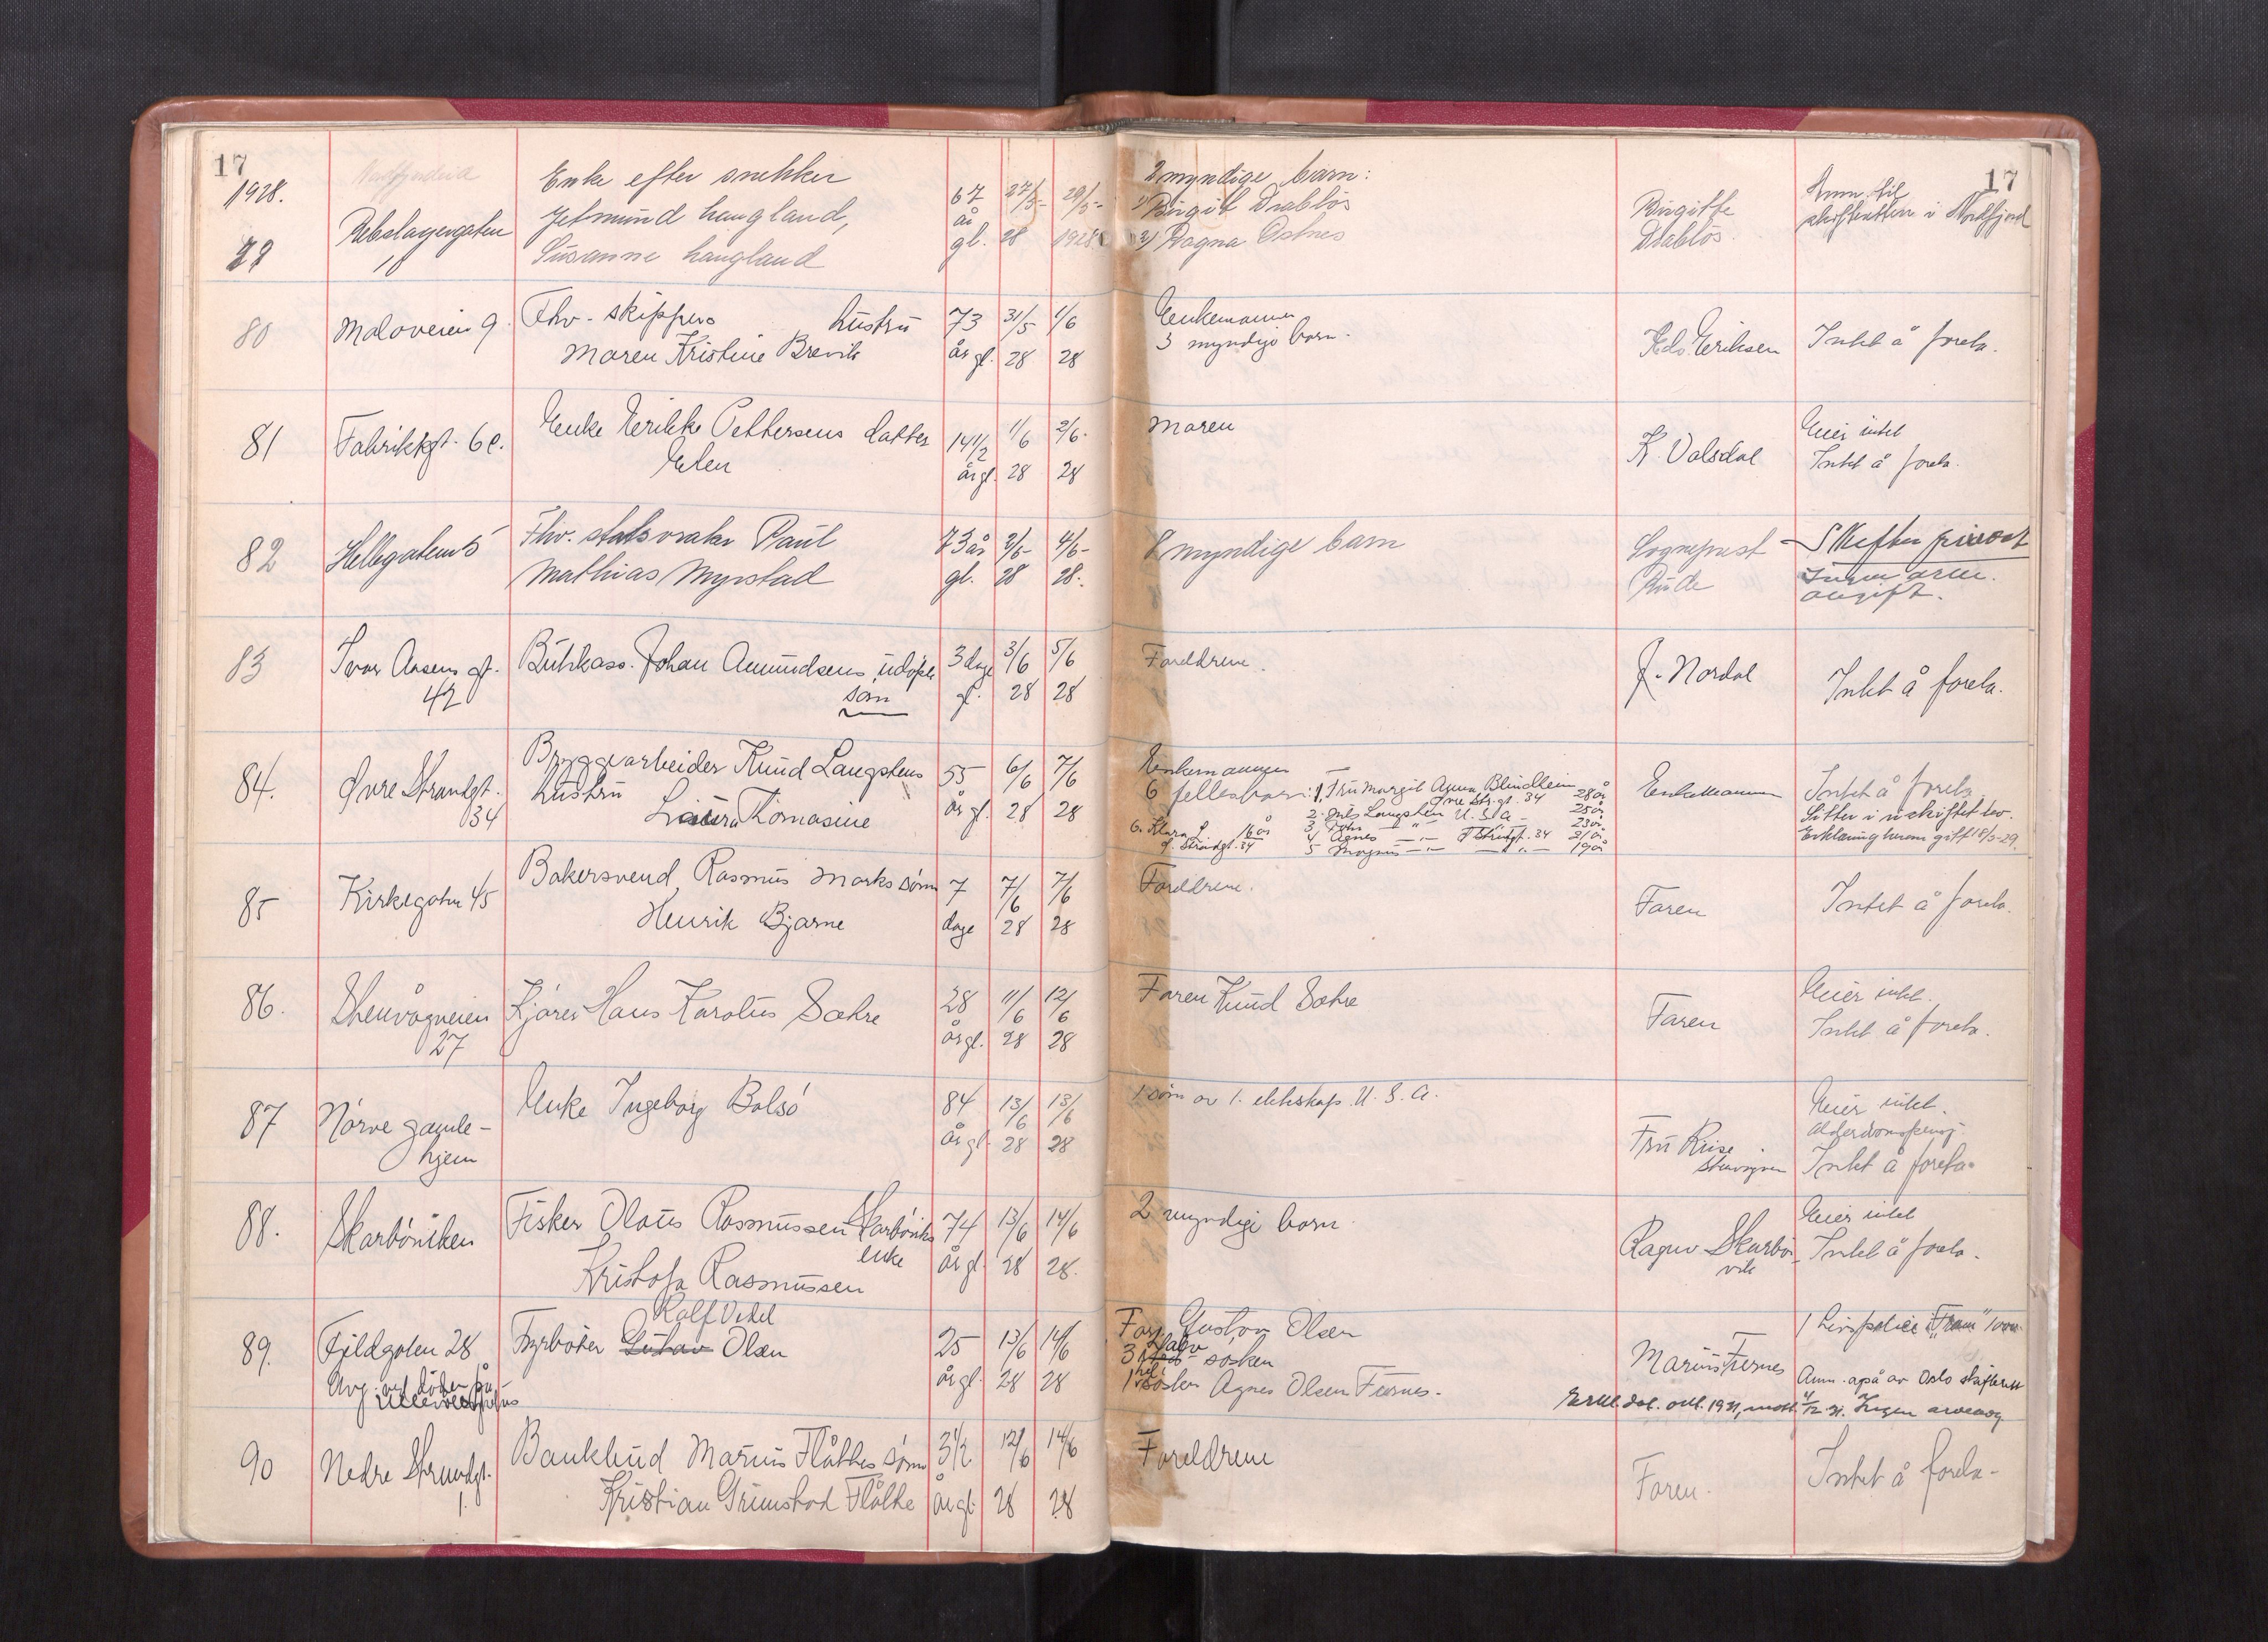 17
17
1928.
79
Rebslagergaten
10
Enke efter snekker
Jetmund Laugland,
Susanne Laugland
67
år
gl.
27/5-
28
29/5-
1928
2 myndige barn:
1) Birgit Drabløs
2) Ragna Østnes
Birgitte
Drabløs.
Anm. til
skifteretten i Nordfjord
80
Moloveien 9.
Fhv. skippers hustru
Maren Kristine Brevik
73
år gl.
31/5
28
1/6
28
Enkemannen
3 myndige barn.
Eriksen
Intet å foreta.
81
Fabrikkgt. 6c.
Enke Erikke Pettersens datter
Elen
14 1/2
år gl.
1/6
28
2/6.
28
Moren
K. Valsdal
Eier intet
Intet å foreta.
82
Hellegaten 5
Fhv. stuts vraker Paul
Mathias Myrstad
73 år
gl.
2/6-
28
4/6-
28.
8 myndige barn
Sogneprest
Rude
Skifter privat
Ingen arve.
avgift.
83
Ivar Aasens gt.
42
Butikkass. Johan Amundsens udøpte
søn
3 dage
gl.
3/6
28
5/6
28
Foreldrene.
J. Nordal
Intet å foreta.
84.
Øvre Strandgt.
34
Bryggearbeider Knud Langstens
hustru
Laura Thomasine
55
år gl.
6/6
28
7/6
28
Enkemannen
6 fellesbarn: 1, Fru Margit Anna Blindheim 28 år
Øvre Str.gt. 34
2. Jens Langsten U.S.A. 25 år
3, John — " — 23 år
4 Agnes — " — Ø Strandgt. 34 21 år
5 Magnus — " — — " — 19 år
6. Klara L. 16 år
Ø. Strandgt. 34
Enkemannen
Intet å foreta
Sitter i uskiftet bo.
Erklæring herom gitt 18/3-29.
85
Kirkegaten 45
Bakersvend Rasmus Marks sønn
Henrik Bjarne
7
dage
7/6
28
7/6
28
Foreldrene.
Faren
Intet å foreta.
86.
Stenvågveien
27
Kjører Hans Karolus Sætre
28
år gl.
11/6
28
12/6
28
Faren Knud Sætre
Faren
Eier intet.
Intet å foreta.
87
Nørve gamle-
hjem
Enke Ingeborg Bolsø
84
år gl.
13/6
28
13/6
28
1 søn av 1. ekteskap. U.S.A.
Fru Riise
Stenvågveien
Eier intet.
Alderdomspensj.
Intet å foreta.
88.
Skarbøviken
Fisker Olaus Rasmussen Skarbøviks
enke
Kristofa Rasmussen
74
år gl.
13/6
28
14/6
28.
2 myndige barn
Ragnv Skarbø-
vik
Eier intet
Intet å foreta.
89.
Fjeldgaten 28
Avg. ved døden på
Ullevål sykehus
Rolf Odd
Fyrbøter Gustav Olsen
25
år gl.
13/6
28
14/6
28
Far Gustav Olsen
3 halv søsken
1 hel søster Agnes Olsen Furnes.
Marius Furnes
1 Livspolice i "Fram" 1000.
Anm. også av Oslo skifterett
Erkl. dat. okt. 1931, mott. 4/12-31. Ingen arveavg.
90
Nedre Strandgt.
1.
Bankbud Marius Flåthes sønn
Kristian Grimstad Flåthe
3 1/2
år gl
12/6
28
14/6
28
Foreldrene
Faren.
Intet å foreta.